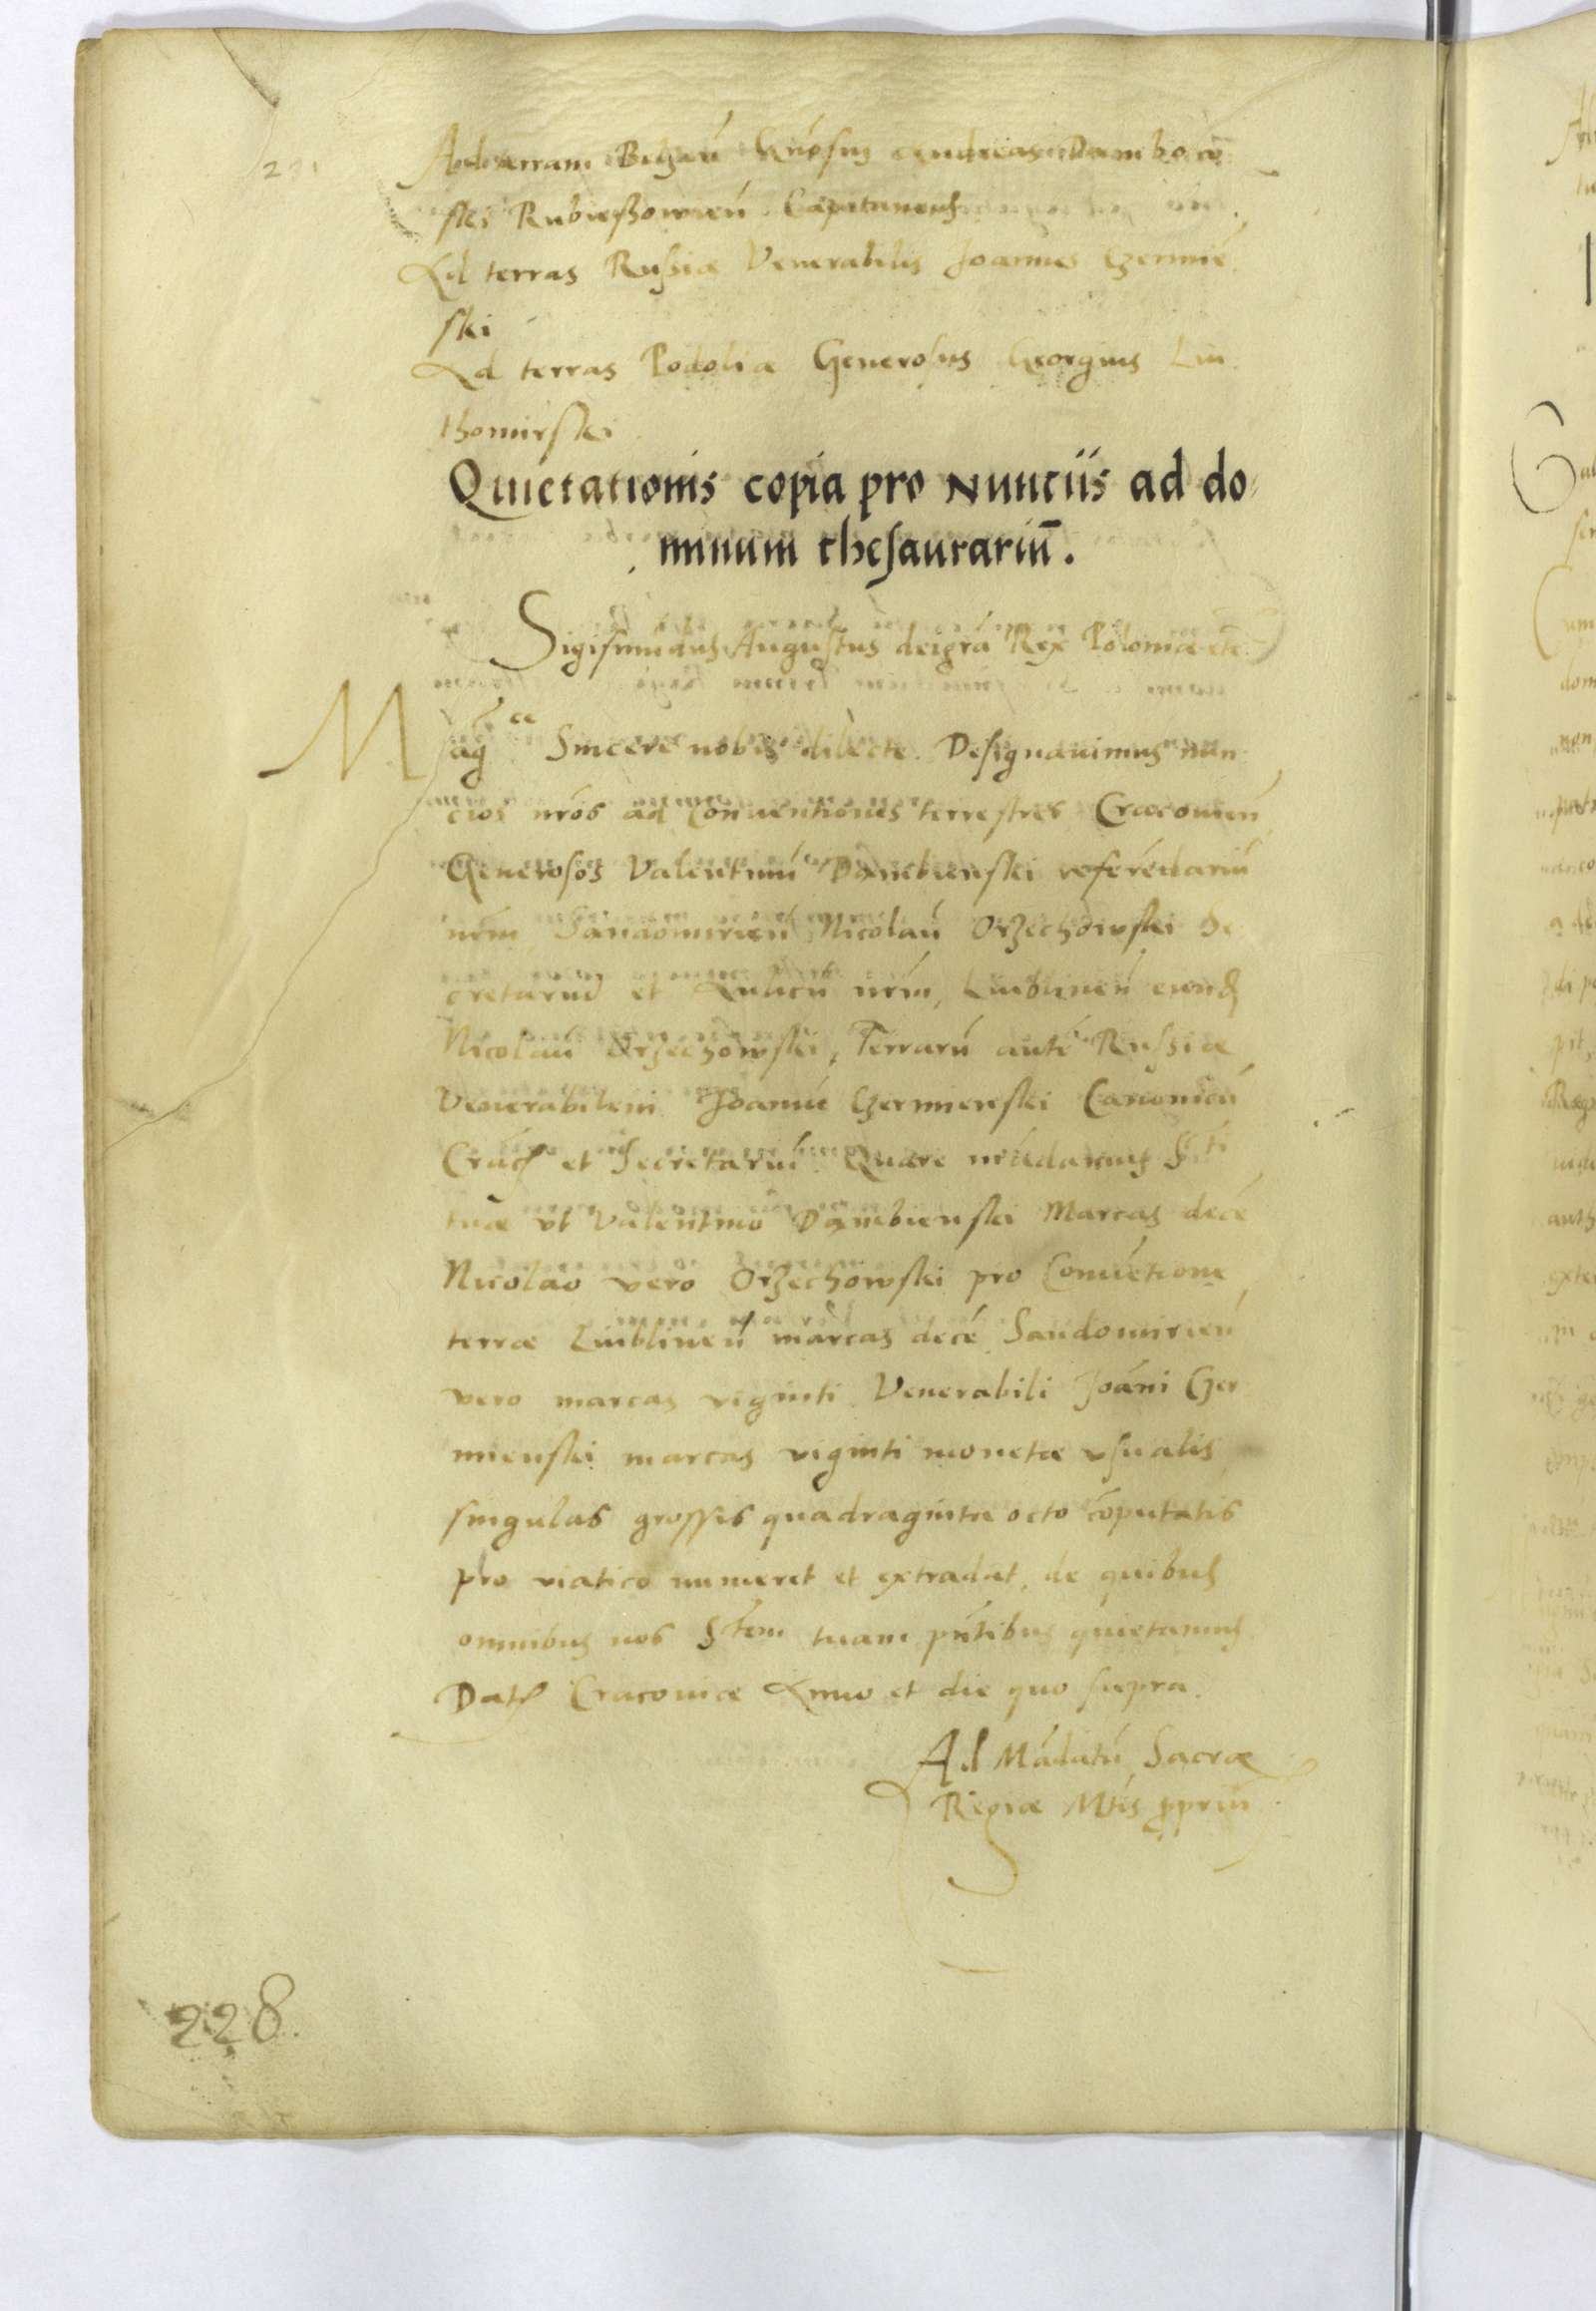 Ad terram Belzen̄ Andreas Dambo
ski Rubieszowien̄ Capitaneus
Ad terras Russiæ Venerabilis Joannes Czermie
ski
Ad terras Podoliæ Generosus Georgius Lu
thomirski
Quietationis copia pro Nunciis ad do
minum thesaurariū.
Sigismūdus Augustus dei gra Rex Poloniæ etc
Magce Sincere nobis dilecte. Designauimus nun
cios nros ad Conuentiones terrestres Cracouien̄
Generosos Valentinū Dambienski referēdariū
nrm Sandomirien̄ Nicolaū Orzechowski Se
cretariū et Aulicū nrm, Lublinen̄ eund
Nicolaū Orzechowski, Terrarū autē Russiæ
Venerabilem Joannē Czermienski Canonicū
Crac et Secretariū Quare mādamus Sti
tuæ vt Valentino Dambienski Marcas decē
Nicolao vero Orzechowski pro Conuētione
terræ Lublinen̄ marcas decē Sandomirien̄
vero marcas viginti Venerabili Joāni Czer
mienski marcas viginti monetæ vsualis
singulas grossis quadraginta octo cōputatis
pro viatico numeret et extradat, de quibus
omnibus nos Stem tuam pntibus quietamus
Dat Cracouiæ Anno et die quo supra.
Ad Mādatū Sacræ
Regiæ Mtis ppriū
228.